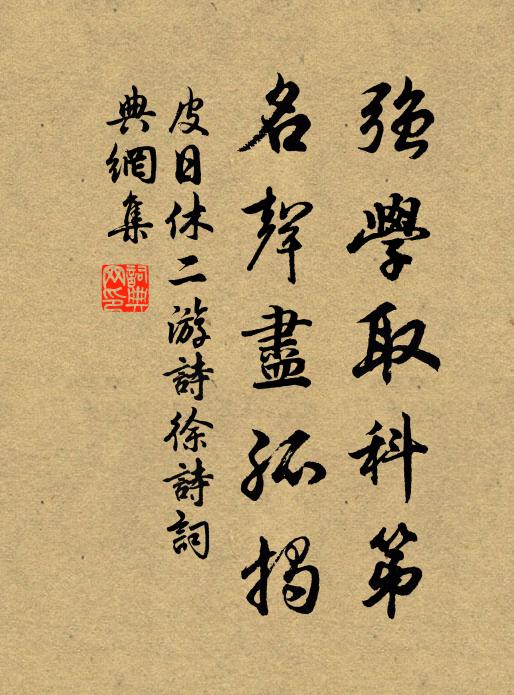 強學取科第
名聲盡孤揭
皮日休二游詩徐詩詞
典網集
詞典網印